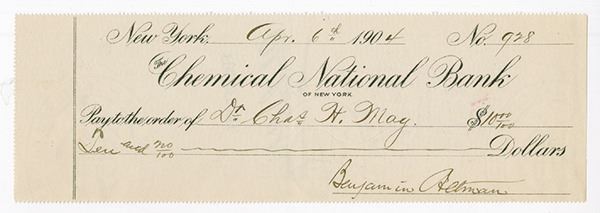 New York, Apr. 6th 1904 No. 928
The Chemical National Bank
OF NEW YORK
Pay to the order of Dr. Chas. H. May. $10 00/100
Ten and no/100 Dollars
Benjamin Altman